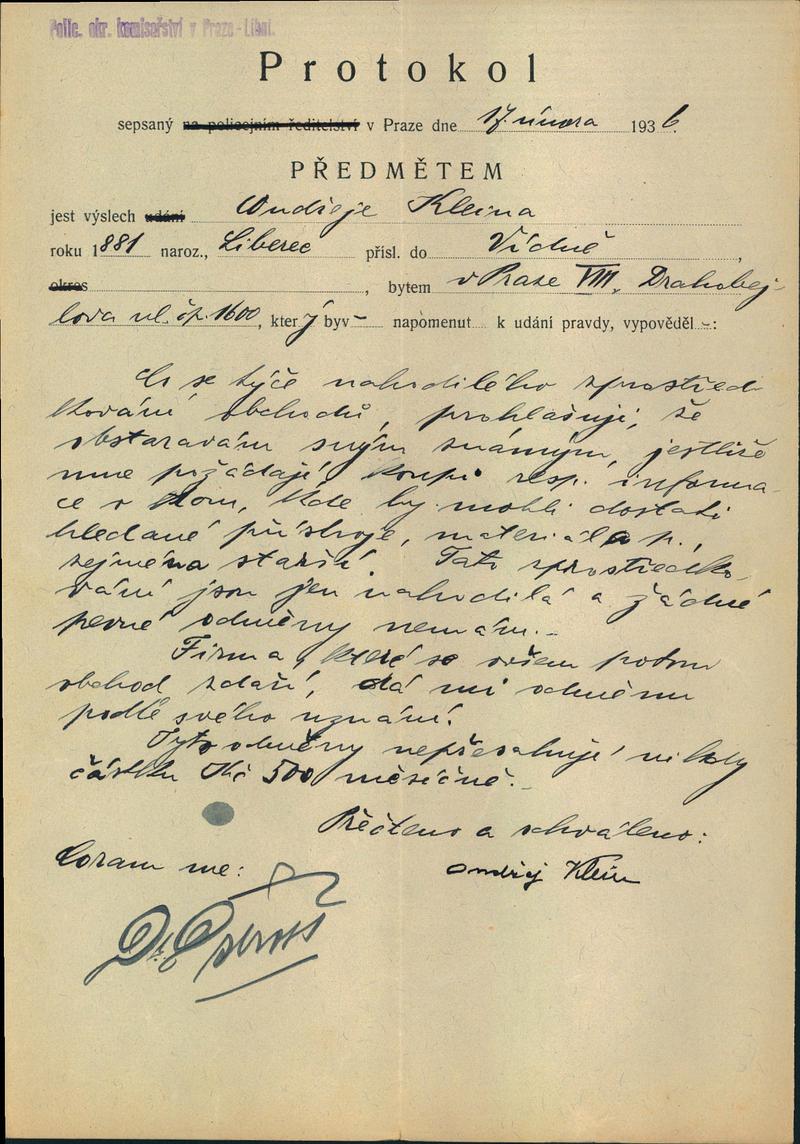 Polic. okr. komisařství v Praze-Libni.
Protokol
sepsaný na policejním ředitelství v Praze dne 17. února 1936.
PŘEDMĚTEM
jest výslech udání Ondřeje Kleina
roku 1881 naroz., Liberec přísl. do Vídně,
okres , bytem v Praze VIII., Drahobej-
lova ul. čp. 1600, který byv- napomenut k udání pravdy, vypověděl-:
Co se týče nahodilého zprostřed-
kování obchodů, prohlašuji, že
obstarávám svým známým, jestliže
mne požádají koupi resp. informa-
ce o tom, kde by mohli dostati
hledané přístroje, materiál a p.,
zejména starší. Tato zprostředko-
vání jsou jen nahodilá a žádné
pevné odměny nemám.-
Firma, které se ovšem potom
obchod zdaří, dá mi odměnu
podle svého uznání.
Tyto odměny nepřesahují nikdy
částku Kč 500 měsíčně.-
Přečteno a schváleno:
Coram me:
Ondřej Klein
Dr.